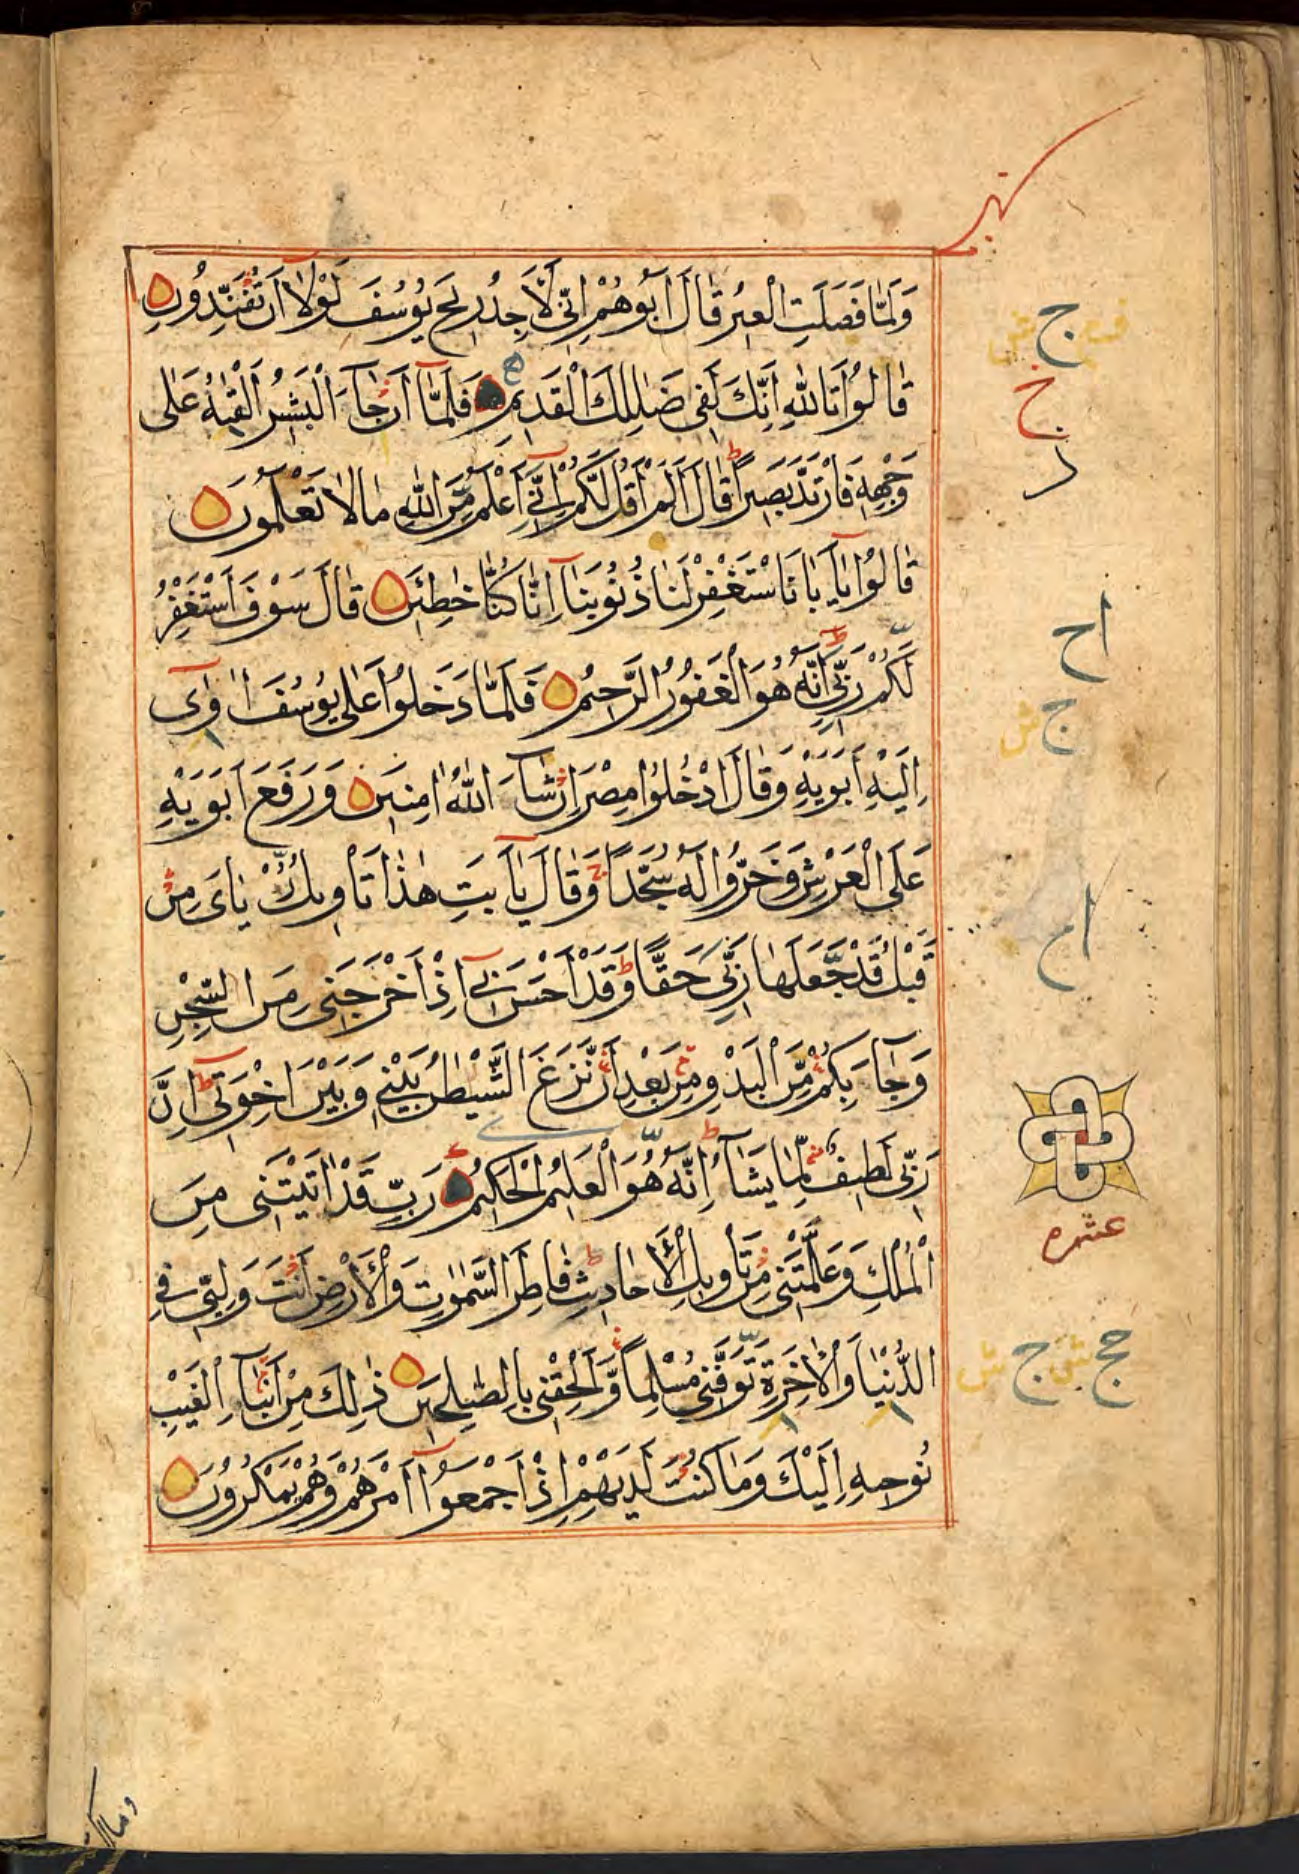 وَلَمَّا فَصَلَتِ الْعِيرُ قَالَ اَبُوهُمْ اِنِّي لَاَجِدُ رِيحَ يُوسُفَ لَوْلَا اَنْ تُفَنِّدُونِ
قَالُوا تَاللّٰهِ اِنَّكَ لَفِي ضَلٰلِكَ الْقَدِيمِ فَلَمَّا اَنْ جَاءَ الْبَشِيرُ اَلْقٰيهُ عَلٰى
وَجْهِهِ فَارْتَدَّ بَصِيرًا قَالَ اَلَمْ اَقُلْ لَكُمْ اِنِّي اَعْلَمُ مِنَ اللّٰهِ مَا لَا تَعْلَمُونَ
قَالُوا يَا اَبَانَا اسْتَغْفِرْ لَنَا ذُنُوبَنَا اِنَّا كُنَّا خٰطِئِينَ قَالَ سَوْفَ اَسْتَغْفِرُ
لَكُمْ رَبِّي اِنَّهُ هُوَ الْغَفُورُ الرَّحِيمُ فَلَمَّا دَخَلُوا عَلٰى يُوسُفَ اٰوٰى
اِلَيْهِ اَبَوَيْهِ وَقَالَ ادْخُلُوا مِصْرَ اِنْ شَاءَ اللّٰهُ اٰمِنِينَ وَرَفَعَ اَبَوَيْهِ
عَلَى الْعَرْشِ وَخَرُّوا لَهُ سُجَّدًا وَقَالَ يَا اَبَتِ هٰذَا تَاْوِيلُ رُءْيَايَ مِنْ
قَبْلُ قَدْ جَعَلَهَا رَبِّي حَقًّا وَقَدْ اَحْسَنَ بِي اِذْ اَخْرَجَنِي مِنَ السِّجْنِ
وَجَاءَ بِكُمْ مِنَ الْبَدْوِ مِنْ بَعْدِ اَنْ نَزَغَ الشَّيْطٰنُ بَيْنِي وَبَيْنَ اِخْوَتِي اِنَّ
رَبِّي لَطِيفٌ لِمَا يَشَاءُ اِنَّهُ هُوَ الْعَلِيمُ الْحَكِيمُ رَبِّ قَدْ اٰتَيْتَنِي مِنَ
الْمُلْكِ وَعَلَّمْتَنِي مِنْ تَاْوِيلِ الْاَحَادِيثِ فَاطِرَ السَّمٰوٰتِ وَالْاَرْضِ اَنْتَ وَلِيِّي فِي
الدُّنْيَا وَالْاٰخِرَةِ تَوَفَّنِي مُسْلِمًا وَاَلْحِقْنِي بِالصّٰلِحِينَ ذٰلِكَ مِنْ اَنْبَاءِ الْغَيْبِ
نُوحِيهِ اِلَيْكَ وَمَا كُنْتَ لَدَيْهِمْ اِذْ اَجْمَعُوا اَمْرَهُمْ وَهُمْ يَمْكُرُونَ
ج
ج
اح
ج
اح
عشره
حج ج